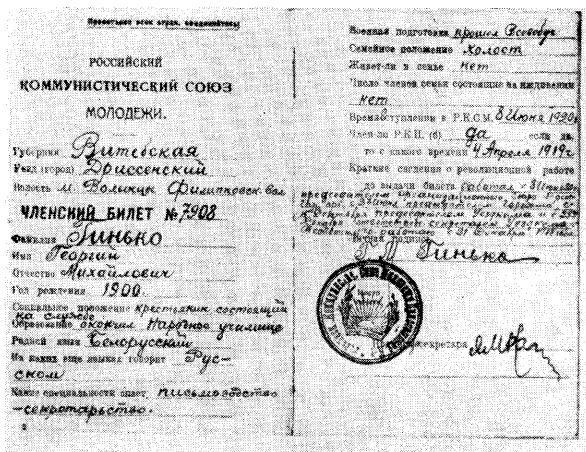 Пролетарии всех стран, соединяйтесь!
РОССИЙСКИЙ
КОММУНИСТИЧЕСКИЙ СОЮЗ
МОЛОДЕЖИ.
Губерния Витебская
Уезд (город) Дриссенский
Волость м. Волынцы Филипповск. вол
ЧЛЕНСКИЙ БИЛЕТ № 7908
Фамилия Гинько
Имя Георгий
Отчество Михайлович
Год рождения 1900.
Социальное положение крестьянин состоящий
на службе
Образование окончил Народное училище
Родной язык Белорусский
На каких еще языках говорит Рус-
ском
Какие специальности знает письмоводство
-секретарство.
Военная подготовка прошел Всевобуч
Семейное положение холост
Живет-ли в семье нет
Число членов семьи состоящие на иждивении
нет
Время вступления в Р.К.С.М. 8 Июня 1920г
Член-ли Р.К.П. (б) да если да,
то с какого времени 4 Апреля 1919г
Краткие сведения о революционной работе
до выдачи билета работал с
председателем
председателем Уездкома
секретарем Уездкома
Личная подпись
Г М Гинько
секретаря